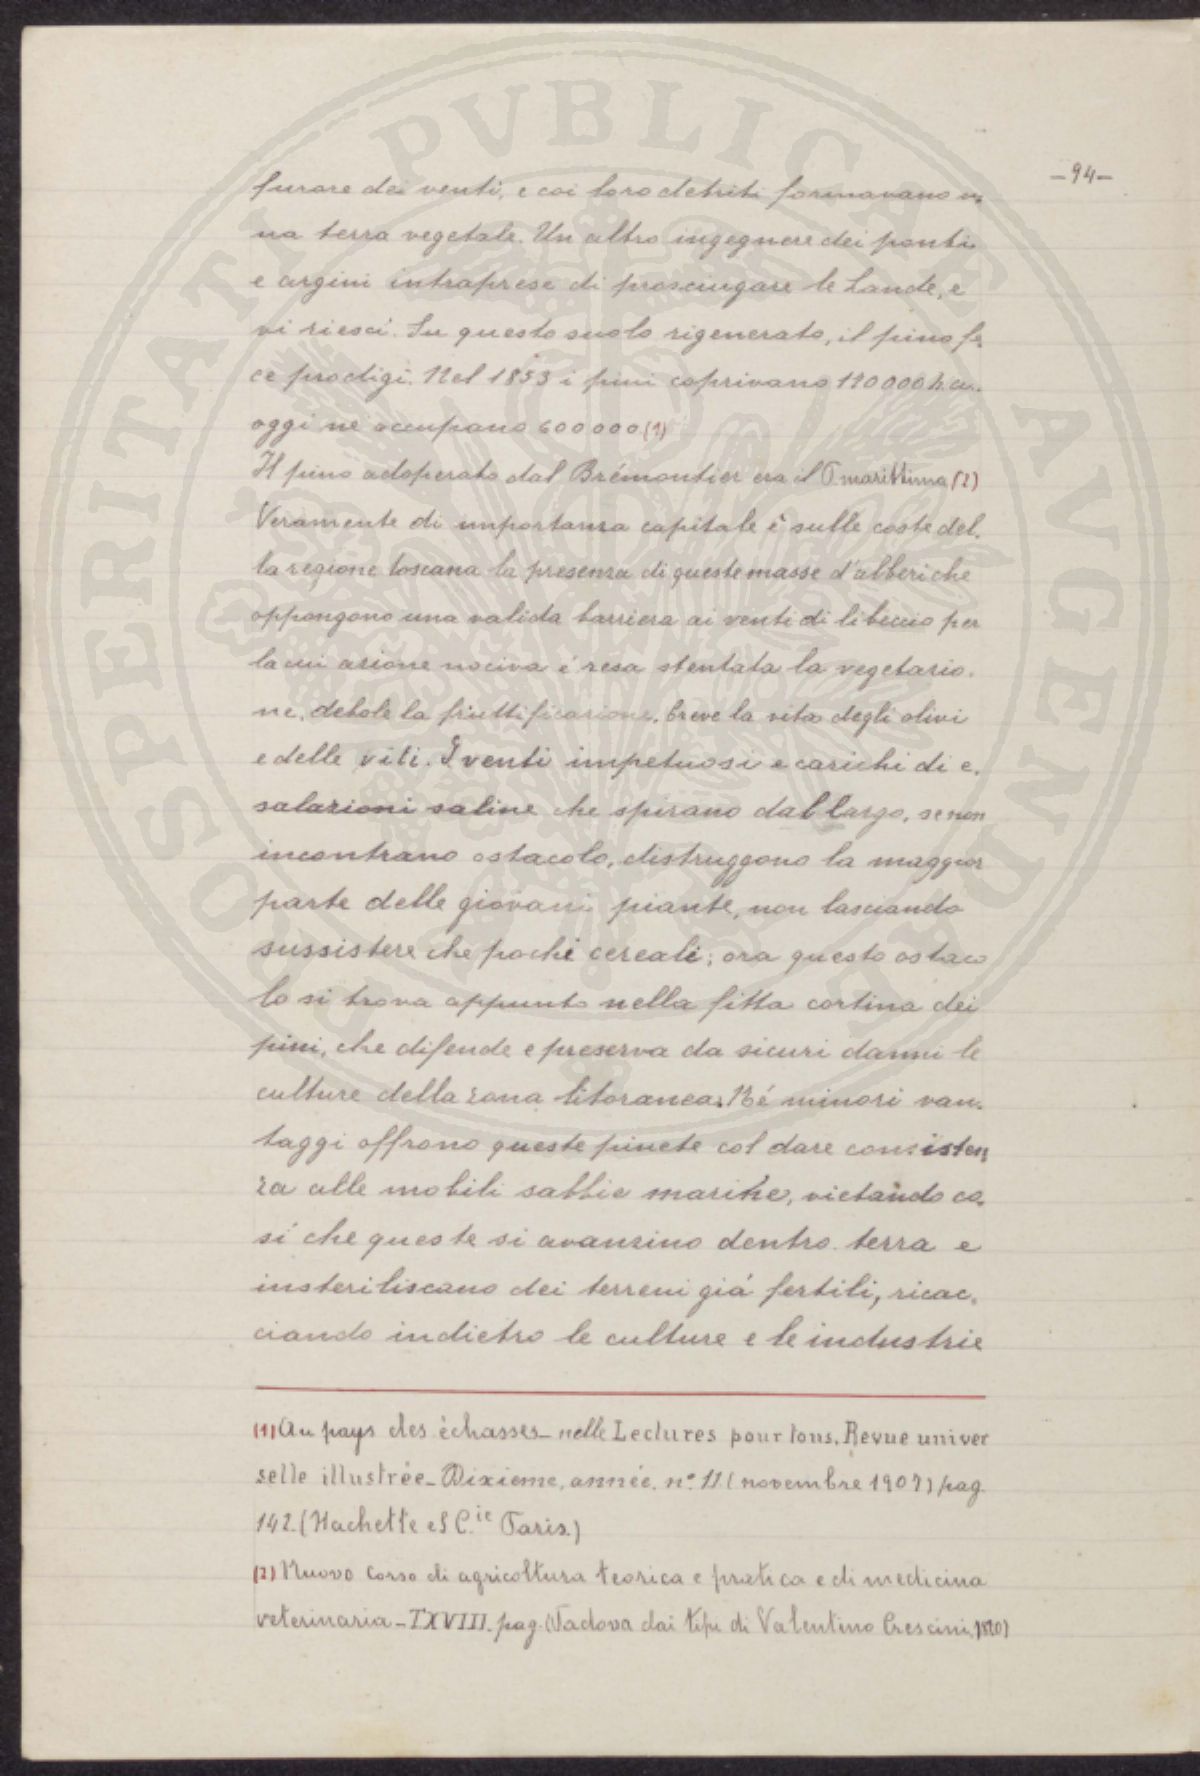 -94-
furore dei venti, e coi loro detriti formavano u-
na terra vegetale. Un altro ingegnere dei ponti
e argini intraprese di prosciugare le Lande, e
vi riescì. Su questo suolo rigenerato, il pino fe-
ce prodigi. Nel 1853 i pini coprivano 120000 h.a.
oggi ne occupano 600000 (1)
Il pino adoperato dal Brémontier era il P. marittima (2)
Veramente di importanza capitale è sulle coste del-
la regione toscana la presenza di queste masse d'alberi che
oppongono una valida barriera ai venti di libeccio per
la cui azione nociva é resa stentata la vegetazio-
ne, debole la fruttificazione, breve la vita degli olivi
e delle viti. I venti impetuosi e carichi di e-
salazioni saline che spirano dal largo, se non
incontrano ostacolo, distruggono la maggior
parte delle giovani piante, non lasciando
sussistere che pochi cereali; ora questo ostaco
lo si trova appunto nella fitta cortina dei
pini, che difende e preserva da sicuri danni le
culture della zona litoranea. Né minori van-
taggi offrono queste pinete col dare consisten
za alle mobili sabbie marine, vietando co-
sí che queste si avanzino dentro terra e
insteriliscano dei terreni giá fertili, ricac-
ciando indietro le culture e le industrie
(1) Au pays des échasses - nelle Lectures pour tous. Revue univer
selle illustrée - Dixieme, année. n.° 11 (novembre 1907) pag.
142. (Hachette et C.ie Paris.)
(2) Nuovo Corso di agricoltura teorica e pratica e di medicina
veterinaria - T XVIII. pag. (Padova dai tipi di Valentino Crescini, 1820)
PROSPERITATI PVBLICAE AVGENDAE